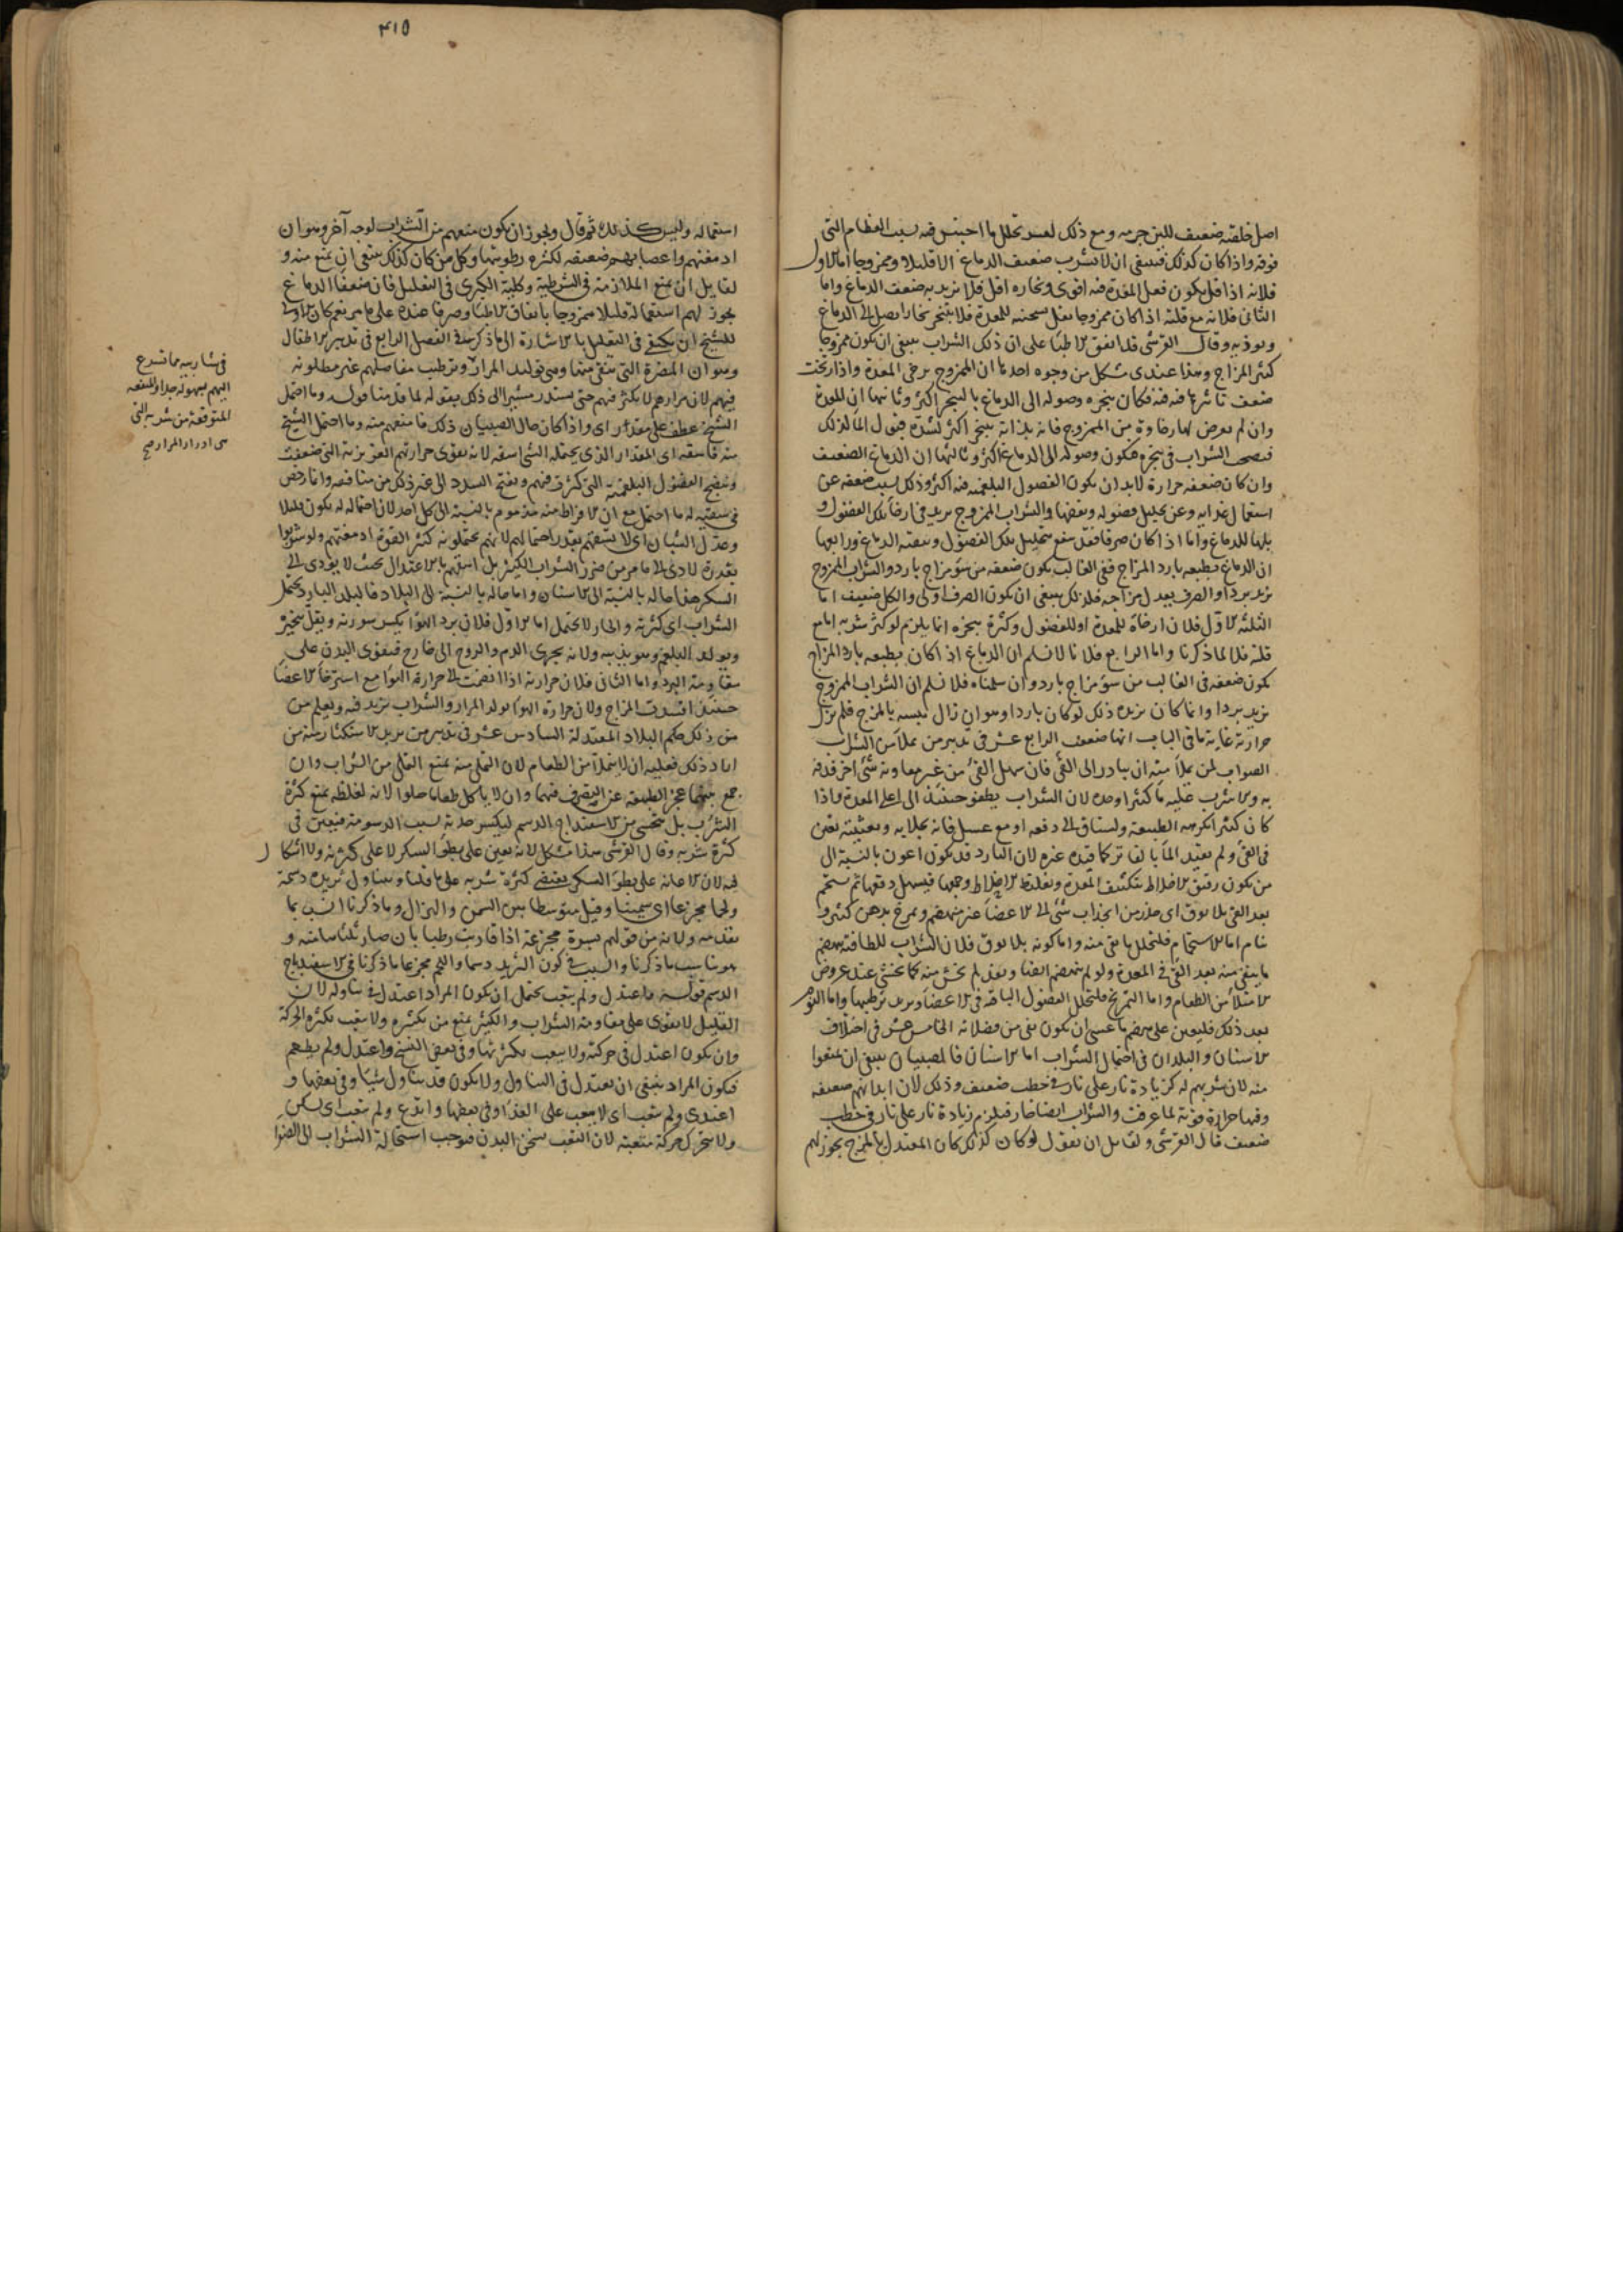 اصل خلقته ضعيف للين جرمه ومع ذلك لعسر تحلل ما احتبس فيه بسبب العظام التي
فوقه واذا كان كذلك فينبغي ان لا يشرب ضعيف الدماغ الا قليلا وممزوجا اما الاول
فلانه اذا قل يكون فعل المعدة فيه اقوى وبخاره اقل فلا يزيد به ضعف الدماغ واما
الثاني فلانه مع قلته اذا كان ممزوجا يقل سخنه للمعدة فلا يتبخر بخارا يصل الى الدماغ
ويوذيه وقال القرشي قد اتفق الاطبا على ان ذلك الشراب ينبغي ان يكون ممزوجا
كثير المزاج وهذا عندي مشكل من وجوه احدها ان الممزوج يرخي المعدة واذا ارتخت
ضعف تاثيرها فيه فكان تبخره وصوله الى الدماغ بالتبخر اكثر وثانيها ان المعدة
وان لم يعرض لها رخاوة من الممزوج فانه بذاته يتبخر اكثر لشدة قبول الما لذلك
فيصحب الشراب في تبخره فيكون وصوله الى الدماغ اكثر وثالثها ان الدماغ الضعيف
وان كان ضعفه حرارة لابد ان يكون الفضول البلغمية فيه اكثر وذلك بسبب ضعفه عن
استعمال غذايه وعن تحليل فضوله ونفضها والشراب الممزوج يزيد في ارخا تلك الفضول و
بلها للدماغ واما اذا كان صرفا فقد ينفع بتحليل تلك الفضول وتنقية الدماغ ورابعها
ان الدماغ بطبعه بارد المزاج ففي الغالب يكون ضعفه من سو مزاج بارد والشراب الممزوج
يزيد بردا والصرف يعدل مزاجه فلذلك ينبغي ان يكون الصرف اولى والكل ضعيف اما
الثلثة الاول فلان ارخاه للمعدة او للفضول وكثرة تبخره انما يلزم لو كثر شربه اما مع
قلته فلا لما ذكرنا واما الرابع فلانا لا نسلم ان الدماغ اذا كان بطبعه بارد المزاج
يكون ضعفه في الغالب من سو مزاج بارد وان سلمناه فلا نسلم ان الشراب الممزوج
يزيد بردا وانما كان يزيده ذلك لو كان باردا وهو ان زال يبسه بالمزج فلم يزل
حرارته غاية ما في الباب انها ضعفت الرابع عشر في تدبير من تملا من الشراب
الصواب لمن تملا منه ان يبادر الى القي فان سهل القي من غير معاونة شي اخر فذاك
والا شرب عليه ما كثيرا وحده لان الشراب يطفو حينئذ الى اعلى المعدة واذا
كان كثيرا كرهته الطبيعة واشتاق الى دفعه او مع عسل فانه بجلايه وتغثيته يعين
في القي ولم يقيد الما بالفاتر كما قيده غيره لان البارد قد يكون اعون بالنسبة الى
من يكون رقيق الاخلاط بتكثيف المعدة وتغليظ الاخلاط وجمعها فيسهل دفعها ثم يستحم
بعد القي بلا
ينام اما الاستحمام فليتحلل ما بقي منه واما كونه بلا
ما يبقى منه بعد القي في المعدة ولو لم ينهضم ايضا ونفذ لم يخش منه كما يخشى عند عروض
الامتلا من الطعام واما التمريخ فليتحلل الفضول الباقية في الاعضا ويزيد ترطيبها واما النوم
بعد ذلك فليعين على هضم ما عسى ان يكون بقي من فضلاته الخامس عشر في اختلاف
الاسنان والبلدان في احتمال الشراب اما الاسنان فالصبيان ينبغي ان يمنعوا
منه لان شربهم له كزيادة نار على نار في حطب ضعيف وذلك لان ابدانهم ضعيفة
وفيها حرارة قوية لما عرفت والشراب ايضا حار فيلزم زيادة نار على نار في حطب
ضعيف قال القرشي ولقائل ان يقول لو كان كذلك كان المعتدل بالمزج يجوز لهم
٤١٥
استعماله وليس كذلك ثم قال ويجوز ان يكون منعهم من الشراب لوجه آخر وهو ان
ادمغتهم واعصابهم ضعيفة لكثرة رطوبتها وكل من كان كذلك ينبغي ان يمنع منه و
لقايل ان يمنع الملازمة في الشرطية وكلية الكبرى في التقليل فان ضعفا الدماغ
يجوز لهم استعماله قليلا ممزوجا باتفاق الاطبا وصرفا عنده على ما مر نعم كان الاولى
للشيخ ان يكتفي في التعليل بالاشارة الى ما ذكره في الفصل الرابع في تدبير الاطفال
وهو ان المضرة التي تتقى منها وهي توليد المرار وترطيب مفاصلهم غير مطلوبة
فيهم لان مرارهم لا يكثر فيهم حتى يستدر مشيرا الى ذلك بقوله لما قدمنا قوله وما احتمل
الشيخ عطف على مقدر اي واذا كان حال الصبيان ذلك فامنعهم منه وما احتمل الشيخ
منه فاسقه اي المقدار الذي يحتمله الشيخ اسقه لانه يقوي حرارتهم الغريزية التي ضعفت
وينضج الفضول البلغمية التي كثرت فيهم ويفتح السدد الى غير ذلك من منافعه وانما رخص
في سقيه له ما احتمل مع ان الافراط منه مذموم بالنسبة الى كل احد لان احتماله له يكون قليلا
وعدل الشبان اي لا تسقهم بقدر احتمالهم لانهم يحتملون كثيرا لقوة ادمغتهم ولو شربوا
بقدره لادى الى ما مر من ضرر الشراب الكثير بل اسقهم بالاعتدال بحيث لا يؤدي الى
السكر هذا حاله بالنسبة الى الاسنان واما حاله بالنسبة الى البلاد فالبلد البارد يحتمل
الشراب اي كثرته والحار لا يحتمل اما الاول فلان برد الهوا يكسر سورته ويقل تبخيره
ويولد البلغم وهو يذيبه ولانه يجري الدم والروح الى خارج فيقوي البدن على
مقاومة البرد واما الثاني فلان حرارته اذا انضمت الى حرارة الهوا مع استرخا الاعضا
حينئذ افسدت المزاج ولان حرارة الهوا تولد المرار والشراب يزيد فيه ويعلم من
من ذلك حكم البلاد المعتدلة السادس عشر في تدبير من يريد الاستكثار منه من
اراد ذلك فعليه ان لا يتملا من الطعام لان التملي منه يمنع التملي من الشراب وان
جمع بينهما عجز الطبيعة عن التصرف فيهما وان لا ياكل طعاما حلوا لانه لغلظه يمنع كثرة
الشرب بل يتحسى من الاسفيداج الدسم ليكسر حدته بسبب الدسومة فيعين في
كثرة شربه وقال القرشي هذا مشكل لانه يعين على بطو السكر لا على كثرته ولا اشكال
فيه لان الاعانة على بطو السكر يقتضي كثرة شربه على ما قلنا ويتناول ثريدة دسمة
ولحما مجزعا اي سمينا وقيل متوسطا بين السمن والهزال وما ذكرنا انسب بما
تقدمه ولانه من قولهم بسرة مجزعة اذا قاربت رطبا بان صار ثلثاها منه و
هو يناسب ما ذكرنا والسبب في كون الثريد دسما واللحم مجزعا ما ذكرنا في الاسفيداج
الدسم قوله واعتدل ولم يتعب يحتمل ان يكون المراد اعتدل في تناوله لان
القليل لا يقوى على مقاومة الشراب والكثير يمنع من تكثيره ولا يتعب بكثرة الحركة
وان يكون اعتدل في حركته ولا يتعب بكثرتها وفي بعض النسخ واعتدل ولم يطعم
فيكون المراد ينبغي ان يعتدل في التناول ولا يكون قد يتناول شيئا وفي بعضها و
اغتذى ولم يتعب اي لا يتعب على الغذا وفي بعضها وابتدع ولم يتعب اي يسكن
ولا يتحرك حركة متعبة لان التعب يسخن البدن فيوجب استحالة الشراب الى الصفرا
في مشاربيه مما تسرع
اليهم بسهولة جدا والمنفعة
المتوقعة من شربه التي
هي ادرار المرار